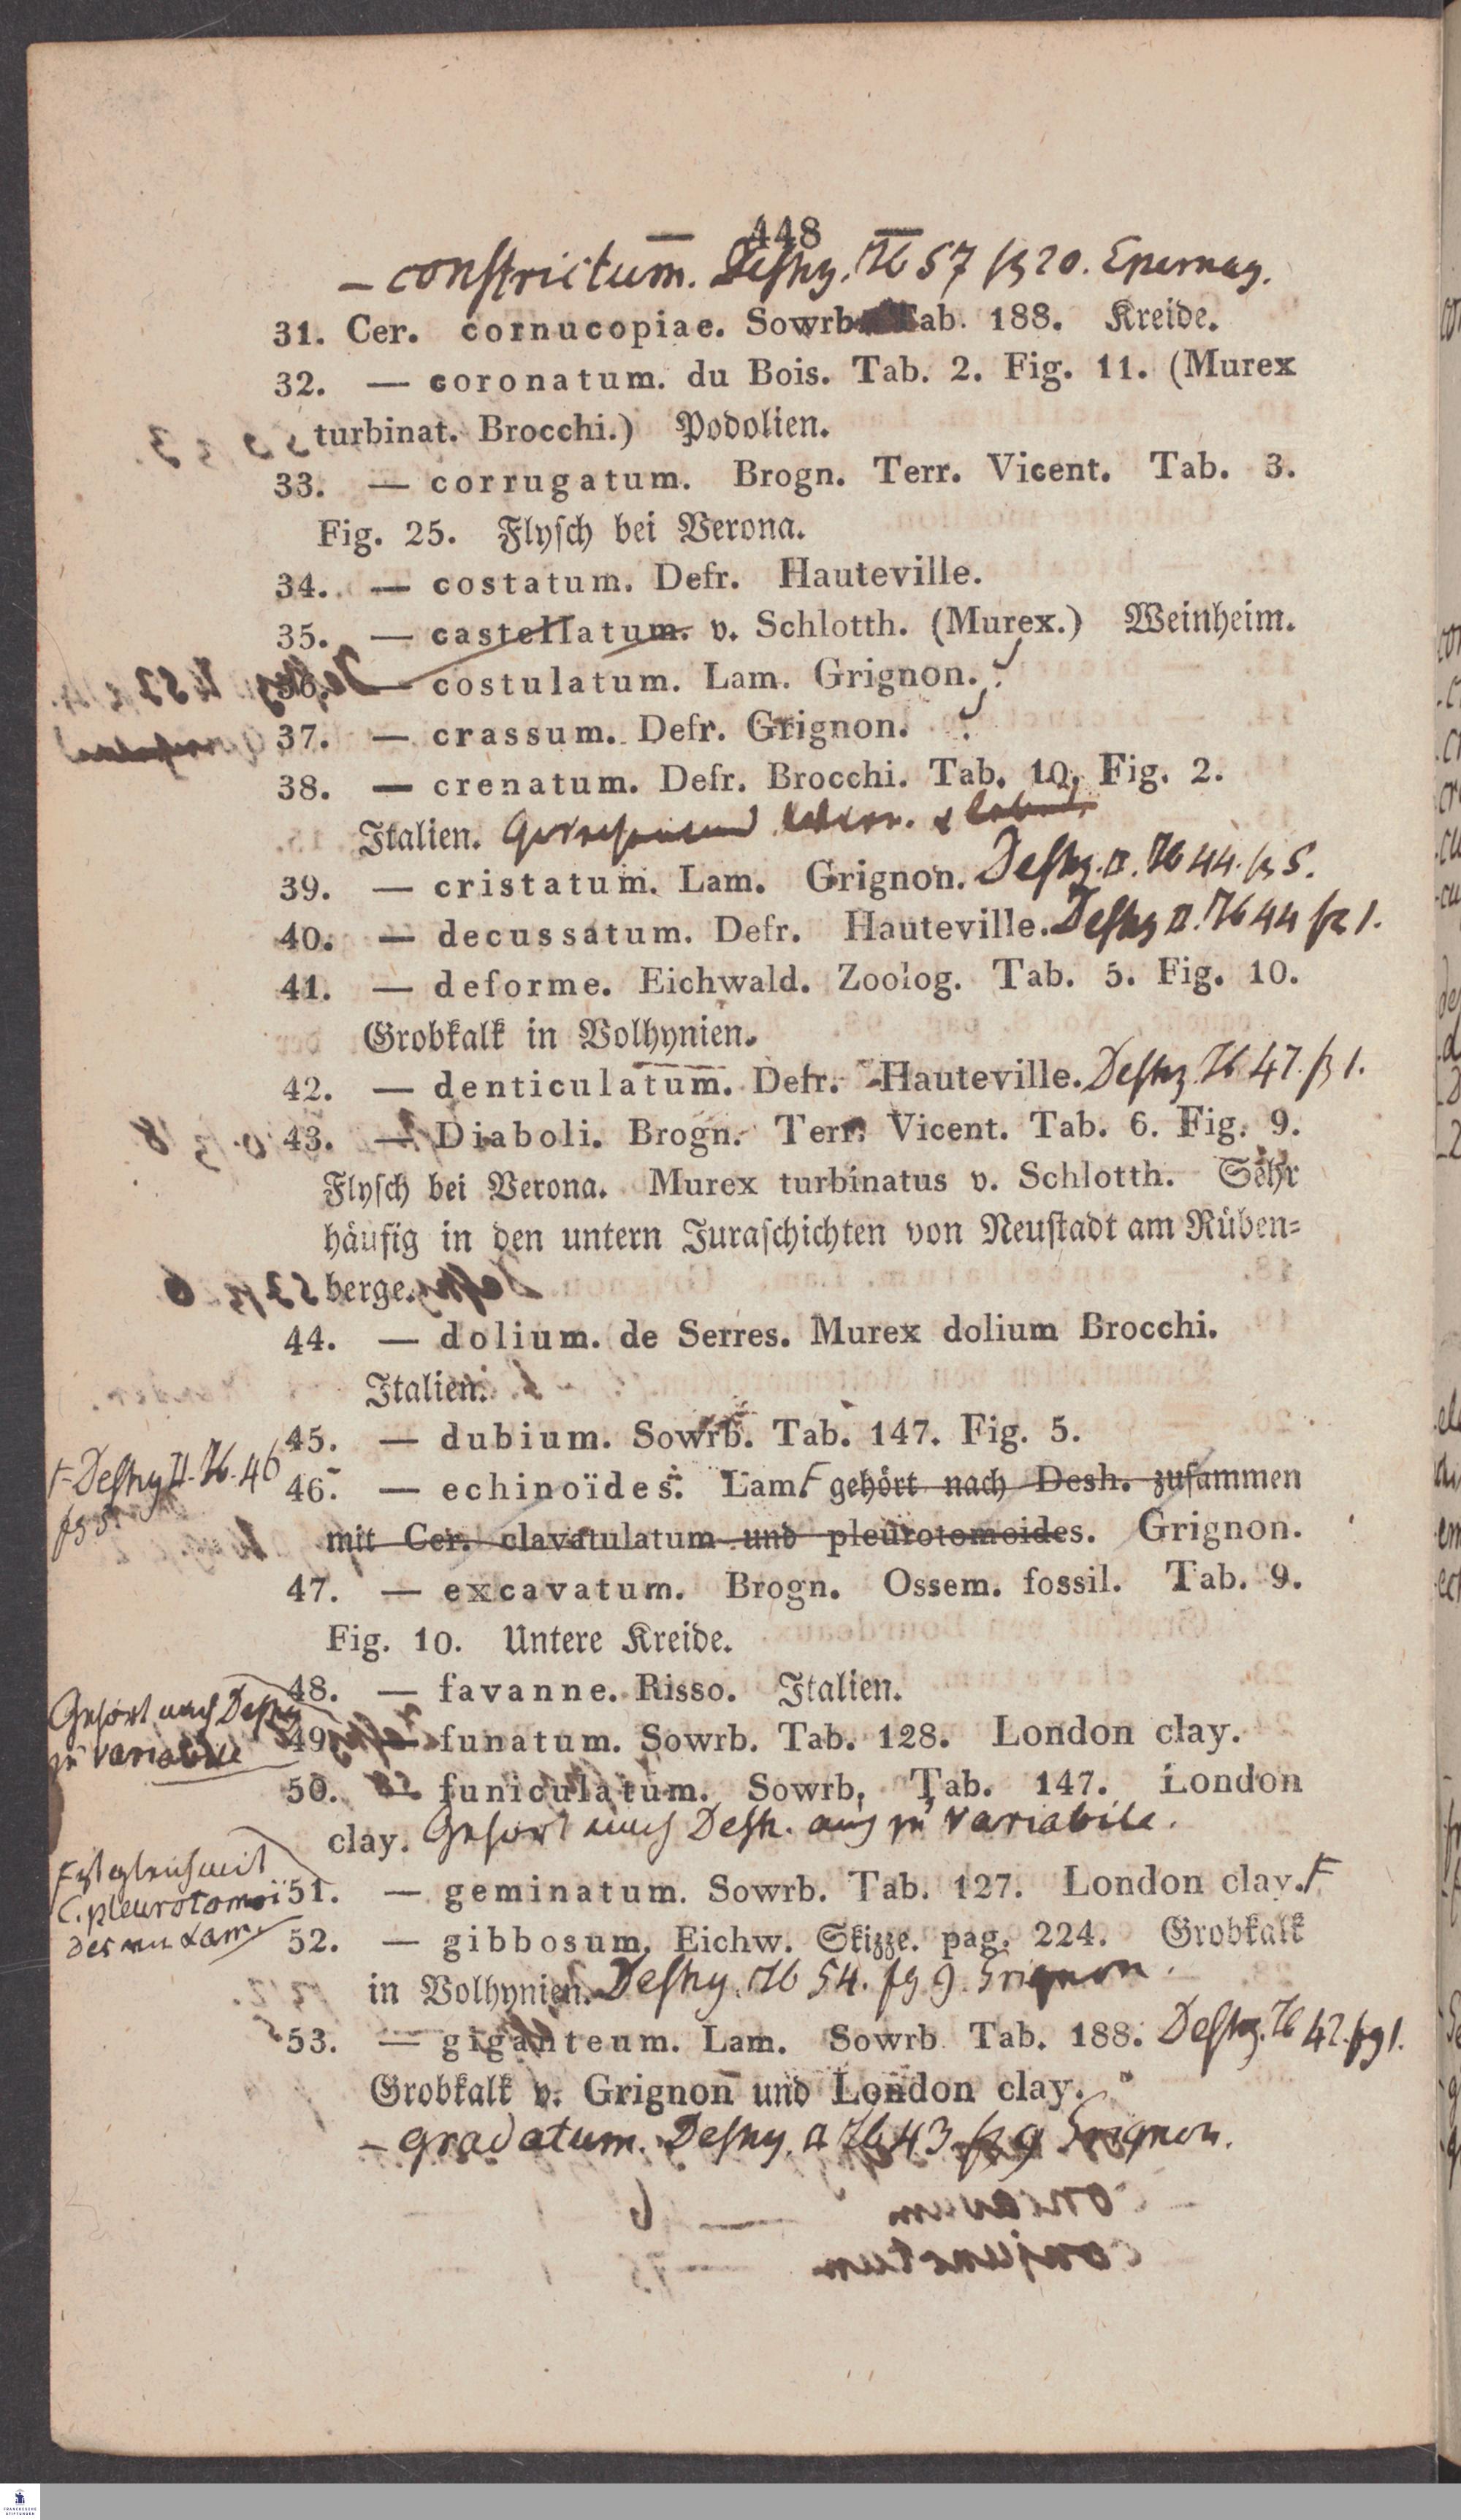 — 448 —
— constrictum. Deshy. Tb 57 fg 20. Epernay.
31. Cer. cornucopiae. Sowrb. Tab. 188. Kreide.
32. — coronatum. du Bois. Tab. 2. Fig. 11. (Murex
turbinat. Brocchi.) Podolien.
33. — corrugatum. Brogn. Terr. Vicent. Tab. 3.
Fig. 25. Flysch bei Verona.
34. — costatum. Defr. Hauteville.
35. — castellatum. v. Schlotth. (Murex.) Weinheim.
36. — costulatum. Lam. Grignon.
37. — crassum. Defr. Grignon.
38. — crenatum. Defr. Brocchi. Tab. 10. Fig. 2.
Italien.
39. — cristatum. Lam. Grignon. Deshy. II. Tb 44. fg 5.
40. — decussatum. Defr. Hauteville. Deshy II. Tb 44 fg 1.
41. — deforme. Eichwald. Zoolog. Tab. 5. Fig. 10.
Grobkalk in Volhynien.
42. — denticulatum. Defr. Hauteville. Deshy. Tb 47. fg 1.
43. — Diaboli. Brogn. Terr. Vicent. Tab. 6. Fig. 9.
Flysch bei Verona. Murex turbinatus v. Schlotth. Sehr
häufig in den untern Juraschichten von Neustadt am Rüben-
berge.
44. — dolium. de Serres. Murex dolium Brocchi.
Italien.
45. — dubium. Sowrb. Tab. 147. Fig. 5.
F Deshy II. Tb. 46
fg 5.
46. — echinoïdes. Lam. F gehört nach Desh. zusammen
mit Cer. clavatulatum und pleurotomoides. Grignon.
47. — excavatum. Brogn. Ossem. fossil. Tab. 9.
Fig. 10. Untere Kreide.
48. — favanne. Risso. Italien.
Gehört nach Deshy
zu variabile
49. — funatum. Sowrb. Tab. 128. London clay.
50. — funiculatum. Sowrb. Tab. 147. London
clay. Gehört nach Desh. auch zu variabile.
F ist gleich mit
C. pleurotomoï
des von Lam.
51. — geminatum. Sowrb. Tab. 127. London clay. F
52. — gibbosum. Eichw. Skizze. pag. 224. Grobkalk
in Volhynien. Deshy. Tb 54. fg 9. Grignon.
53. — giganteum. Lam. Sowrb. Tab. 188. Deshy. Tb 42. fg 1.
Grobkalk v. Grignon und London clay.
— gradatum. Deshy. II Tb 43 fg 9 Grignon.